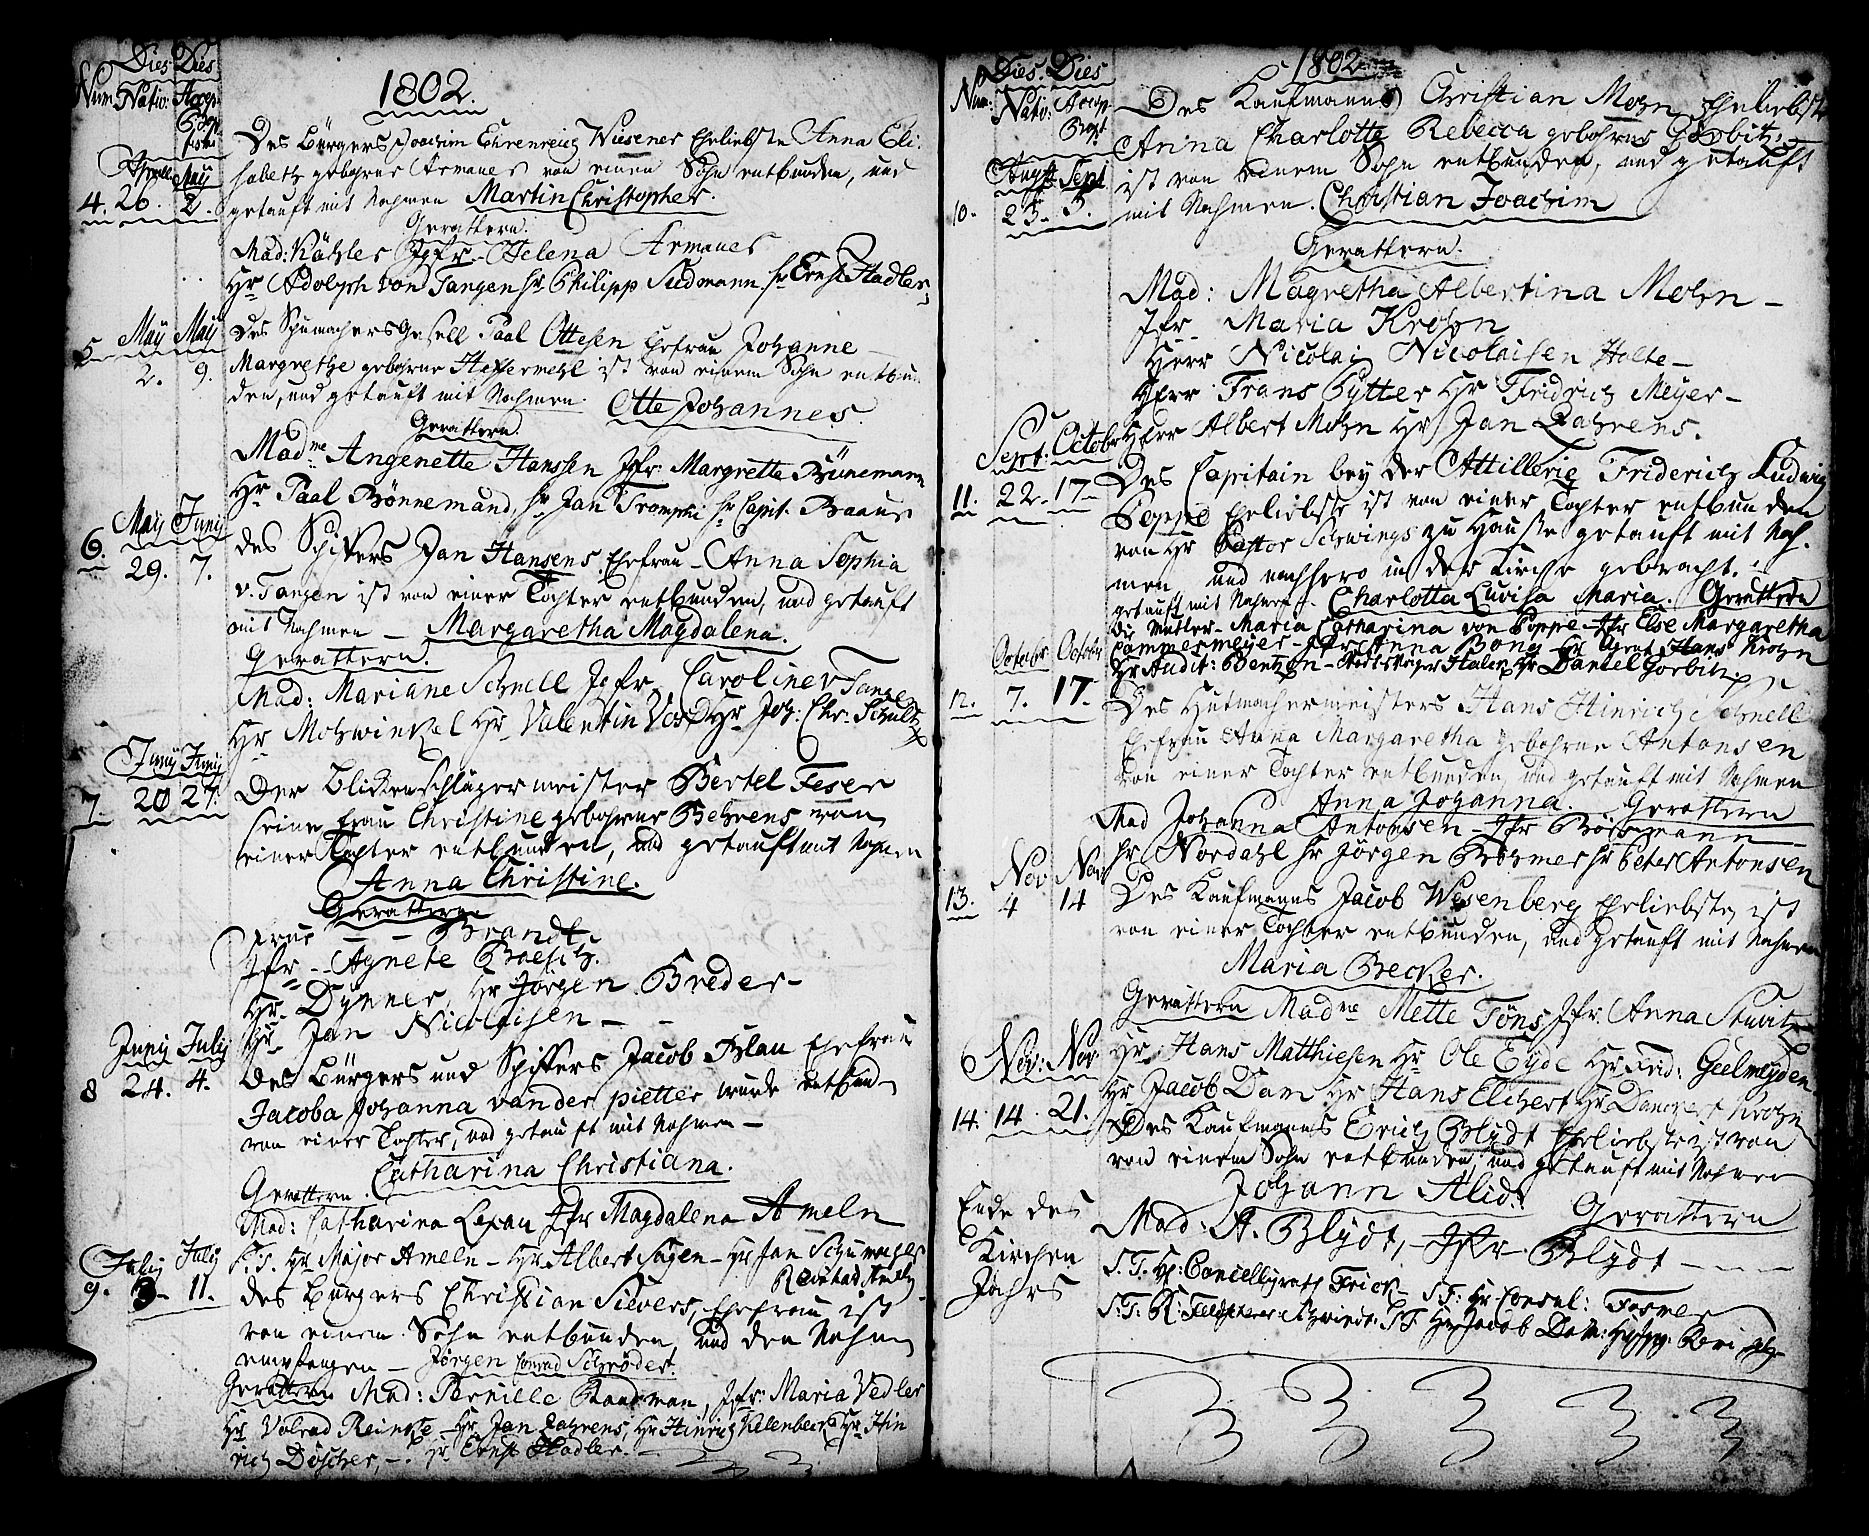 1802.
Num: Dies Nativ: Dies Accep: Bapt:
4. Aprill 26. May 2.
Des Bürgers Joachim Ehrenreich Wiesener Eheliebste Anna Eli:
sabeth gebohrne Armauer von einen Sohn entbunden, und
getauft mit Nahmen Martin Christopher.
Gevattern.
Mad: Kähler Jgfr. Helena Armauer
Hr Adolph von Tangen hr. Philipp Siedmann hr Ernst Stadler,
5 May 2. May 9.
Des Schumachers Gesell Paal Ottesen Ehefrau Johanne
Margrethe gebohrne Heffermehl ist von einem Sohn entbun
den, und getauft mit Nahmen. Otte Johannes.
Gevattern.
Madme Angenette Hanssen Jfr. Margrette Bünemann
Hr Paal Bönnemand, hr Jan hr Capit.
6. May 29. Juny 7.
Des Schiffers Jan Hansens Ehefrau Anna Sophia
v. Tangen ist von einer Tochter entbunden, und getauft
mit Nahmen – Margaretha Magdalena.
Gevattern.
Mad: Mariane Schnell Jgfr. Caroline v Tangen
Hr Mohwinkel Hr Valentin Voss Hr Joh: Chr. Schultz
7. Juny 20 Juny 27.
Der Blickenschläger meister Bertel Feser
seine frau Christine gebohrne Behrens von
einer Tochter entbunden, und getauft mit Nahmen
Anna Christine.
Gevattern
Frue – – Brandt.
Jfr – – Agnete
Hr. Dynner, Hr Jörgen Breder –
Hr. Jan Nicolaisen – –
8 Juny 24. July 4.
Des Bürgers und Schiffers Jacob Blau Ehefrau
Jacoba Johanna van der pietter wurde entbund
von einer Tochter, und getauft mit Nahmen –
Catharina Christiana.
Gevattern.
Mad: Catharina Lexau Jfr Magdalena Ameln
S.T. Hr Major Ameln – Hr. Albert Sagen – Hr Jan Schumacher
9. July 3. July 11.
Des Bürgers Christian Sievers, Ehefrau ist
von einem Sohn entbunden, und den Nahmen
empfangen – Jörgen Conrad Schröder.
Gevattern Mad: Pernille Jfr: Maria Vedler
Hr Volrad Reincke – Hr. Jan Dahrens, Hr Hinrich Hr Hin
rich Döscher, –. hr Ernst Stadler. –
1802
Num: Dies Nativ: Dies Accep Bapt
10. Augst 25. Sept 5.
Des Kaufmanns Christian Mohn Eheliebste
Anna Charlotte Rebecca gebohrne Görbitz
ist von einem Sohn entbunden, und getauft
mit Nahmen. Christian Joachim
Gevattern.
Mad: Magretha Albertina Mohn –
Jfr Maria Krohn
Herr Nicolai Nicolaisen Holte –
Herr Frans Pytter Hr Fridrich Meyer –
Herr Albert Mohn Hr Jan Dahrens.
11. Sept: 22. Octobr 17.
Des Capitain bey der Attillerie Friderich Ludwig
Poppe Eheliebste ist von einer Tochter entbunden
von Hr Pastor Schwings zu Hause getauft mit Nah.
men und nachhero in der Kirche gebracht.
getauft mit Nahmen. Charlotta Luvisa Maria. Gevattern
Die Mutter – Maria Catharina von Poppe – Jfr Else Margaretha
Pammermeyer – Jfr Anna Bong Hr Agent Hans Krohn
Hr Audit: Bentzen – Hr Daniel Görbitz
12. October 7. Octobr 17.
Des Hutmachermeisters Hans Hinrich Schnell
Ehefrau Anna Margaretha gebohrne Antonsen
von einer Tochter entbunden und getauft mit Nahmen
Anna Johanna. Gevattern
Mad Johanna Antonsen – Jfr Börsmann –
hr Nordahl hr Jörgen Böhmer hr Peter Antonsen
13. Nov 4 Nov 14
Des Kaufmanns Jacob Wesenberg Eheliebste ist
von einer Tochter entbunden, und getauft mit Nahmen
Maria Becker.
Gevattern Madme Mette Töns Jfr. Anna
Hr. Hans Matthiesen Hr Ole Eyde Hr Frid: Geelmeyden
Hr Jacob Dam Hr Hans Elchert Hr Danckert Krohn
14. Nov: 14 Nov 21.
Des Kaufmanns Erich Blydt Eheliebste ist von
von einem Sohn entbunden, und getauft mit Nahmen
Johann Alid: Gevattern
Mad: A. Blydt, – Jfr. Blydt – –
S.T. Hr: Cancellyrath Frick – S.T: Hr Consul: Fasmer
S.T. S.T Hr Jacob Dam:
Ende des
Kirchen
Jahrs